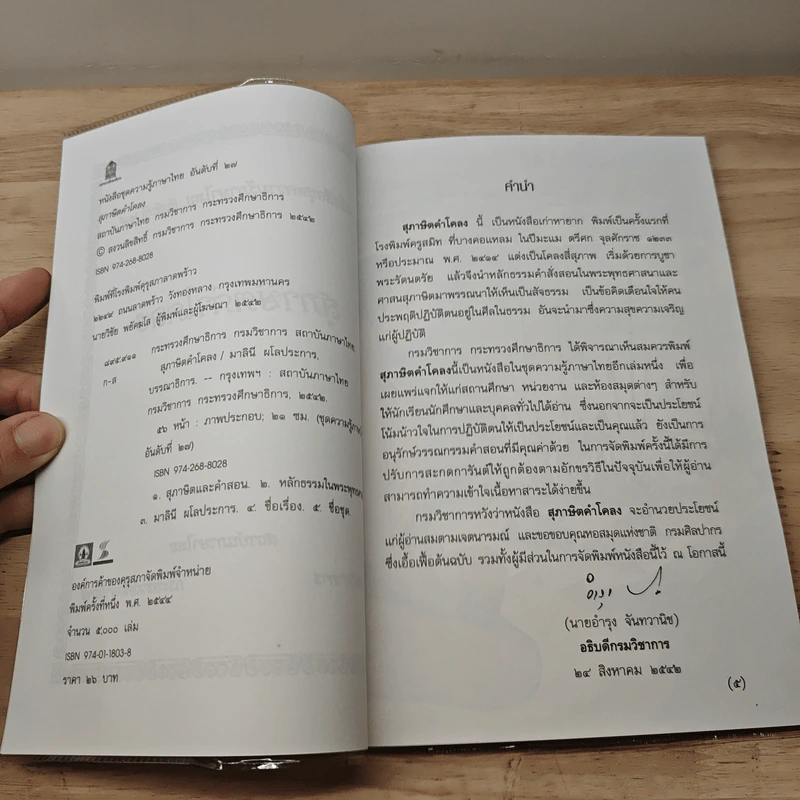 หนังสือชุดความรู้ภาษาไทย อันดับที่ ๒๗
สุภาษิตคำโคลง
สถาบันภาษาไทย กรมวิชาการ กระทรวงศึกษาธิการ
© สงวนลิขสิทธิ์ กรมวิชาการ กระทรวงศึกษาธิการ ๒๕๔๒
ISBN 974-268-8028
พิมพ์ที่โรงพิมพ์คุรุสภาลาดพร้าว
๒๒๔๙ ถนนลาดพร้าว วังทองหลาง กรุงเทพมหานคร
นายวิชัย พยัคฆโส ผู้พิมพ์และผู้โฆษณา ๒๕๔๒
๘๙๕.๙๑๑ กระทรวงศึกษาธิการ กรมวิชาการ สถาบันภาษาไทย.
ก-ส สุภาษิตคำโคลง / มาลินี ผโลประการ,
บรรณาธิการ. -- กรุงเทพฯ : สถาบันภาษาไทย
กรมวิชาการ กระทรวงศึกษาธิการ, ๒๕๔๒.
๕๖ หน้า : ภาพประกอบ; ๒๑ ซม. (ชุดความรู้ภาษาไทย
อันดับที่ ๒๗)
ISBN 974-268-8028
๑. สุภาษิตและคำสอน. ๒. หลักธรรมในพระพุทธศา
๓. มาลินี ผโลประการ. ๔. ชื่อเรื่อง. ๕. ชื่อชุด.
องค์การค้าของคุรุสภาจัดพิมพ์จำหน่าย
พิมพ์ครั้งที่หนึ่ง พ.ศ. ๒๕๔๔
จำนวน ๕,๐๐๐ เล่ม
ISBN 974-01-1803-8
ราคา ๒๖ บาท
คำนำ
สุภาษิตคำโคลง นี้ เป็นหนังสือเก่าหายาก พิมพ์เป็นครั้งแรกที่
โรงพิมพ์ครูสมิท ที่บางคอแหลม ในปีมะแม ตรีศก จุลศักราช ๑๒๓๓
หรือประมาณ พ.ศ. ๒๔๑๔ แต่งเป็นโคลงสี่สุภาพ เริ่มด้วยการบูชา
พระรัตนตรัย แล้วจึงนำหลักธรรมคำสั่งสอนในพระพุทธศาสนาและ
ศาสนสุภาษิตมาพรรณนาให้เห็นเป็นสัจธรรม เป็นข้อคิดเตือนใจให้คน
ประพฤติปฏิบัติตนอยู่ในศีลในธรรม อันจะนำมาซึ่งความสุขความเจริญ
แก่ผู้ปฏิบัติ
กรมวิชาการ กระทรวงศึกษาธิการ ได้พิจารณาเห็นสมควรพิมพ์
สุภาษิตคำโคลงนี้เป็นหนังสือในชุดความรู้ภาษาไทยอีกเล่มหนึ่ง เพื่อ
เผยแพร่แจกให้แก่สถานศึกษา หน่วยงาน และห้องสมุดต่างๆ สำหรับ
ให้นักเรียนนักศึกษาและบุคคลทั่วไปได้อ่าน ซึ่งนอกจากจะเป็นประโยชน์
โน้มน้าวใจในการปฏิบัติตนให้เป็นประโยชน์และเป็นคุณแล้ว ยังเป็นการ
อนุรักษ์วรรณกรรมคำสอนที่มีคุณค่าด้วย ในการจัดพิมพ์ครั้งนี้ได้มีการ
ปรับการสะกดการันต์ให้ถูกต้องตามอักขรวิธีในปัจจุบันเพื่อให้ผู้อ่าน
สามารถทำความเข้าใจเนื้อหาสาระได้ง่ายขึ้น
กรมวิชาการหวังว่าหนังสือ สุภาษิตคำโคลง จะอำนวยประโยชน์
แก่ผู้อ่านสมตามเจตนารมณ์ และขอขอบคุณหอสมุดแห่งชาติ กรมศิลปากร
ซึ่งเอื้อเฟื้อต้นฉบับ รวมทั้งผู้มีส่วนในการจัดพิมพ์หนังสือนี้ไว้ ณ โอกาสนี้
(นายอำรุง จันทวานิช)
อธิบดีกรมวิชาการ
๒๔ สิงหาคม ๒๕๔๒
(๕)